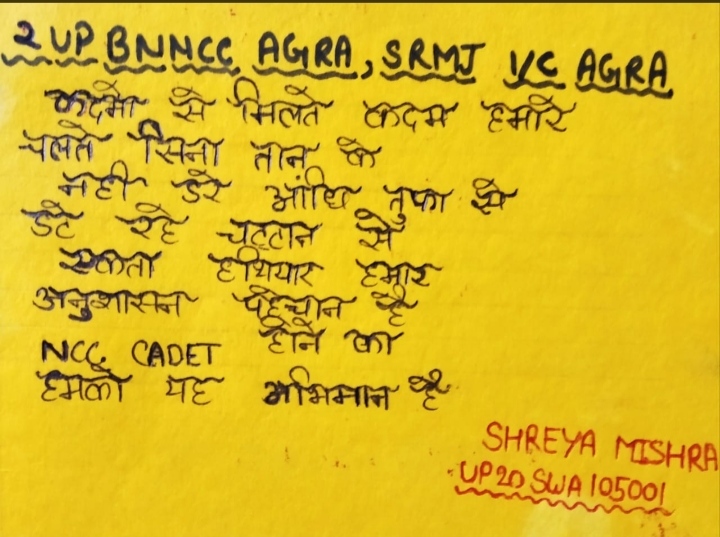 2 UP BNNCC AGRA, SRMJ I/C AGRA
कदमो से मिलते कदम हमारे
चलते सिना तान के
नही डरे आंधि तुफा से
डटे रहे चटटान से
एकता हथियार हमारा
अनुशासन पहेचान है
NCC CADET होने का
हमको यह अभिमान है
SHREYA MISHRA
UP20SWA105001